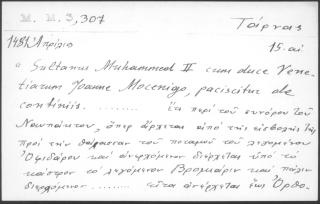 M. M. 3, 307
Τάρνας
1481 Απρίλιο
15. αἰ
" Sultanus Muhammed II cum duce Vene-
tiarum Joanne Mocenigo, paciscitur de
confiniis. ........ Ἔτι περὶ τοῦ συνόρου τοῦ
Ναυπάκτου, ὅπερ ἄρχεται ἀπὸ τῆς εἰσβολῆς τῆς
πρὸς τὴν θάλασσαν τοῦ ποταμοῦ τοῦ λεγομένου
Ὀφιδάρου καὶ ἀνερχόμενον διέρχεται ὑπὸ τὸ
κάστρον τὸ λεγόμενον Βρομαίριν καὶ πάλιν
διερχόμενον ........ εἶτα ἀνέρχεται ἕως Ὀρθο-